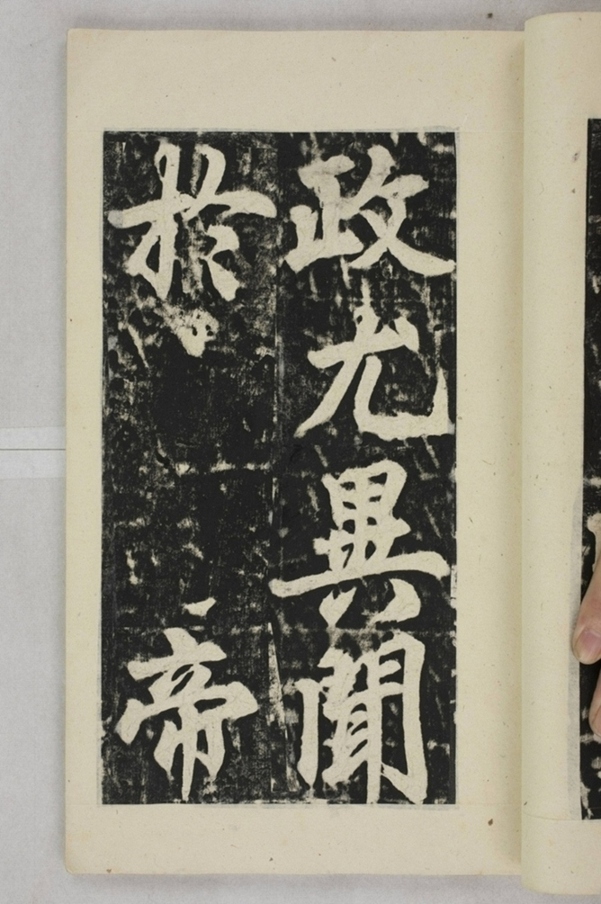 政尤異聞
於帝